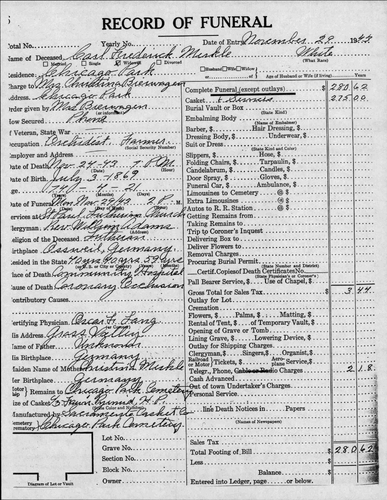 RECORD OF FUNERAL
Total No. Yearly No. Date of Entry November 29 1943
Name of Deceased Carl Frederick Miskle White
Married Single Widowed Divorced (What Race)
Husband Wife Widow Age of Husband or Wife (if living) Years
Residence Chicago Park
Charge to Mrs Christina Bierwagen Complete Funeral (except outlays) $ 280 62
Address Chicago Park Casket & Services $ 275 00
Order given by Mrs Bierwagen Burial Vault $
(State Kind)
How Secured Phone Embalming Body $
(Name of Embalmer)
If Veteran, State War Barber, $ Hair Dressing, $ $
Dressing Body, $ Underwear, $ $
Occupation Orchardist Farmer Suit or Dress $
Social Security Number (State Kind)
Employer and Address Slippers, $ Hose, $ $
Date of Death Nov-24-43 7 P.M. Folding Chairs, $ Tarpaulin, $ $
Candelabrum, $ Candles, $ $
Date of Birth July 3-1869 Door Spray, $ Gloves, $ $
Age 74 4 21 Funeral Car, $ Ambulance, $ $
Limousines to Cemetery $
Date of Funeral Mon Nov 29-43 2 P. M. Extra Limousines $
Autos to R. R. Station $
Services at St Paul Lutheran Church Getting Remains $
Taking Remains $
Clergyman Rev William Adams Trip to Coroner's Inquest $
Religion of the Deceased Lutheran Delivering Box to $
Deliver Flowers to $
Birthplace Germany Removal Charges $
Resided in the State Procuring Burial Permit $
(State Number and District)
Place of Death Community Hospital Certif. Copies of Death Certificates No. $
(State Physician's or Coroner's)
Cause of Death Coronary Occlusion Pall Bearer Service, $ Use of Chapel, $ $
Contributory Causes Gross Total for Sales Tax $ 3 44
Outlay for Lot $
Cremation $
Certifying Physician Oscar F. Lang Flowers, $ Palms, $ Matting, $ $
Rental of Tent, $ of Temporary Vault, $ $
His Address Grass Valley Opening of Grave or Tomb $
Name of Father Unknown Lining Grave, $ Lowering Device, $ $
Outlay for Shipping Charges $
His Birthplace Germany Clergyman, $ Singers, $ Organist, $ $
Maiden Name of Mother Christina Miskle Railroad Tickets or Motor $ Aeroplane Service $ $
Telegr., Phone, Cable or Radio Charges $ 2 18
Her Birthplace Germany Cash Advanced $
Remains to Chicago Park Cemetery Out of town Undertaker's Charges $
Personal Service $
Size of Casket
Manufactured by Sacramento Casket Co line Death Notices in Papers
(Names of Newspapers)
Chicago Park Cemetery $
Lot No. Sales Tax $
Grave No. Total Footing of Bill $ 280 62
Section No. Less $
Block No. Balance $
Diagram of Lot or Vault Owner Entered into Ledger, page or below.